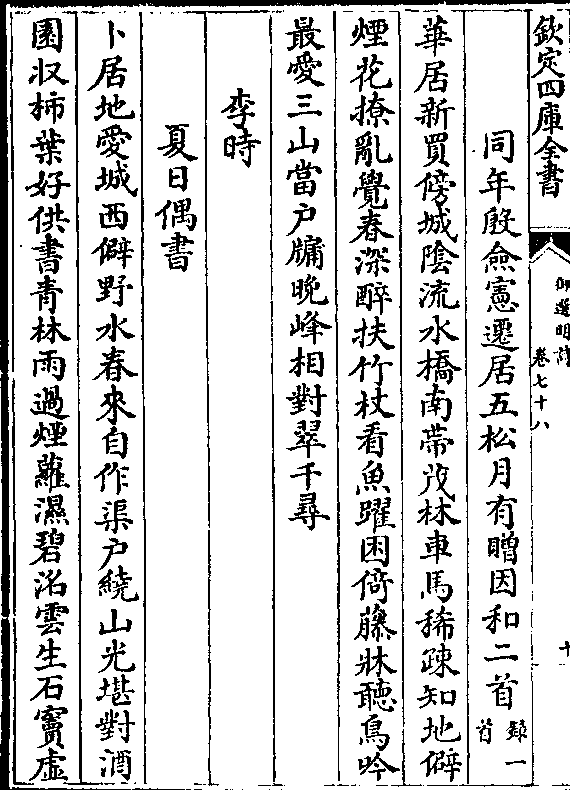 欽定四庫全書
御選明詩
卷七十八
十
同年殷僉憲遷居五松月有贈因和二首錄一首
華居新買傍城陰流水橋南帶茂林車馬稀疎知地僻
煙花撩亂覺春深醉扶竹杖看魚躍困倚藤牀聽鳥吟
最愛三山當户牖晚峰相對翠千尋
李時
夏日偶書
卜居地愛城西僻野水春來自作渠户繞山光堪對酒
園收柿葉好供書青林雨過煙蘿濕碧沼雲生石竇虛